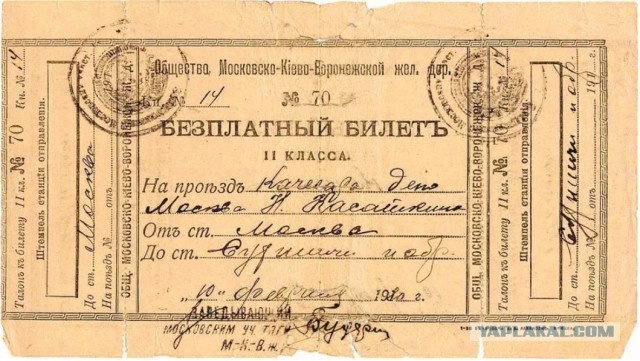 Талонъ къ билету II кл. № 70 Кн. № 14
Штемпель станціи отправленія.
До ст. Москва
На поѣздъ № отъ
ОБЩ. МОСКОВСКО-КІЕВО-ВОРОНЕЖСКОЙ Ж. Д.
Общества Московско-Кіево-Воронежской жел. дор.
Кн. № 14 № 70
БЕЗПЛАТНЫЙ БИЛЕТЪ
II КЛАССА.
На проѣздъ
Москва Н. Касаткина
Отъ ст. Москва
До ст. и обр.
„10" февраля 191 г.
ЗАВЕДЫВАЮЩІЙ
МОСКОВСКИМ УЧ. ТЯГИ
М-К-В.Ж.
ОБЩ. МОСКОВСКО-КІЕВО-ВОРОНЕЖСКОЙ Ж. Д.
Талонъ къ билету II кл. № 70 Кн. № 14
Штемпель станціи отправленія.
До ст. и обр.
На поѣздъ № отъ 191 г.
YAPLAKAL.COM